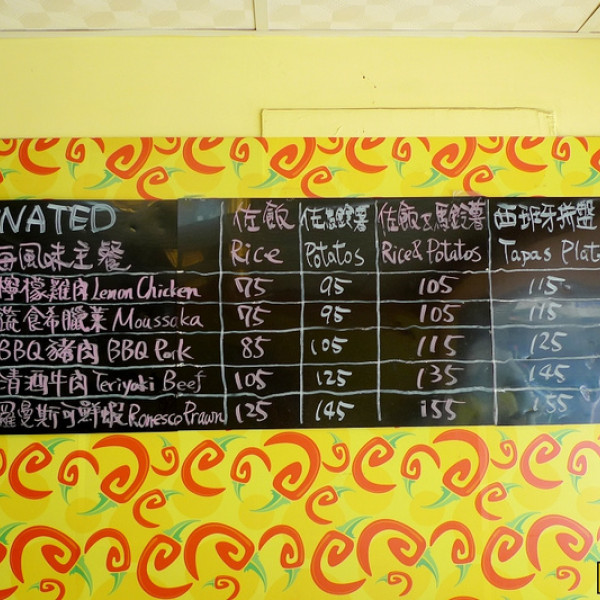 NATED 佐飯 佐馬鈴薯 佐飯&馬鈴薯 西班牙拼盤
風味主餐 Rice Potatos Rice&Potatos Tapas Plat
檸檬雞肉 Lemon Chicken 75 95 105 115
蔬食希臘菜 Moussaka 75 95 105 115
BBQ豬肉 BBQ Pork 85 105 115 125
清酒牛肉 Teriyaki Beef 105 125 135 145
羅曼斯可鮮蝦 Romesco Prawn 125 145 155 155